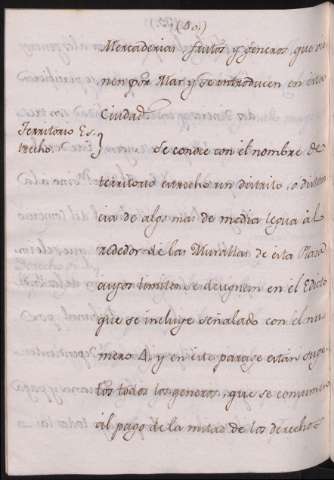 (50.)
Mercaderias, frutos, y géneros, que vie
nen por Mar y se introducen en esta
Ciudad.
Territorio Es-
trecho.
Se conoce con el nombre de
territorio estrecho un distrito, o distan
cia de algo mas de media legua al
rededor de las Murallas de esta Plaza
cuyos limites se designan en el Edicto
que se incluye señalado con el nu-
mero 4, y en este parage están suge-
tos todos los generos, que se consumen
al pago de la mitad de los derechos